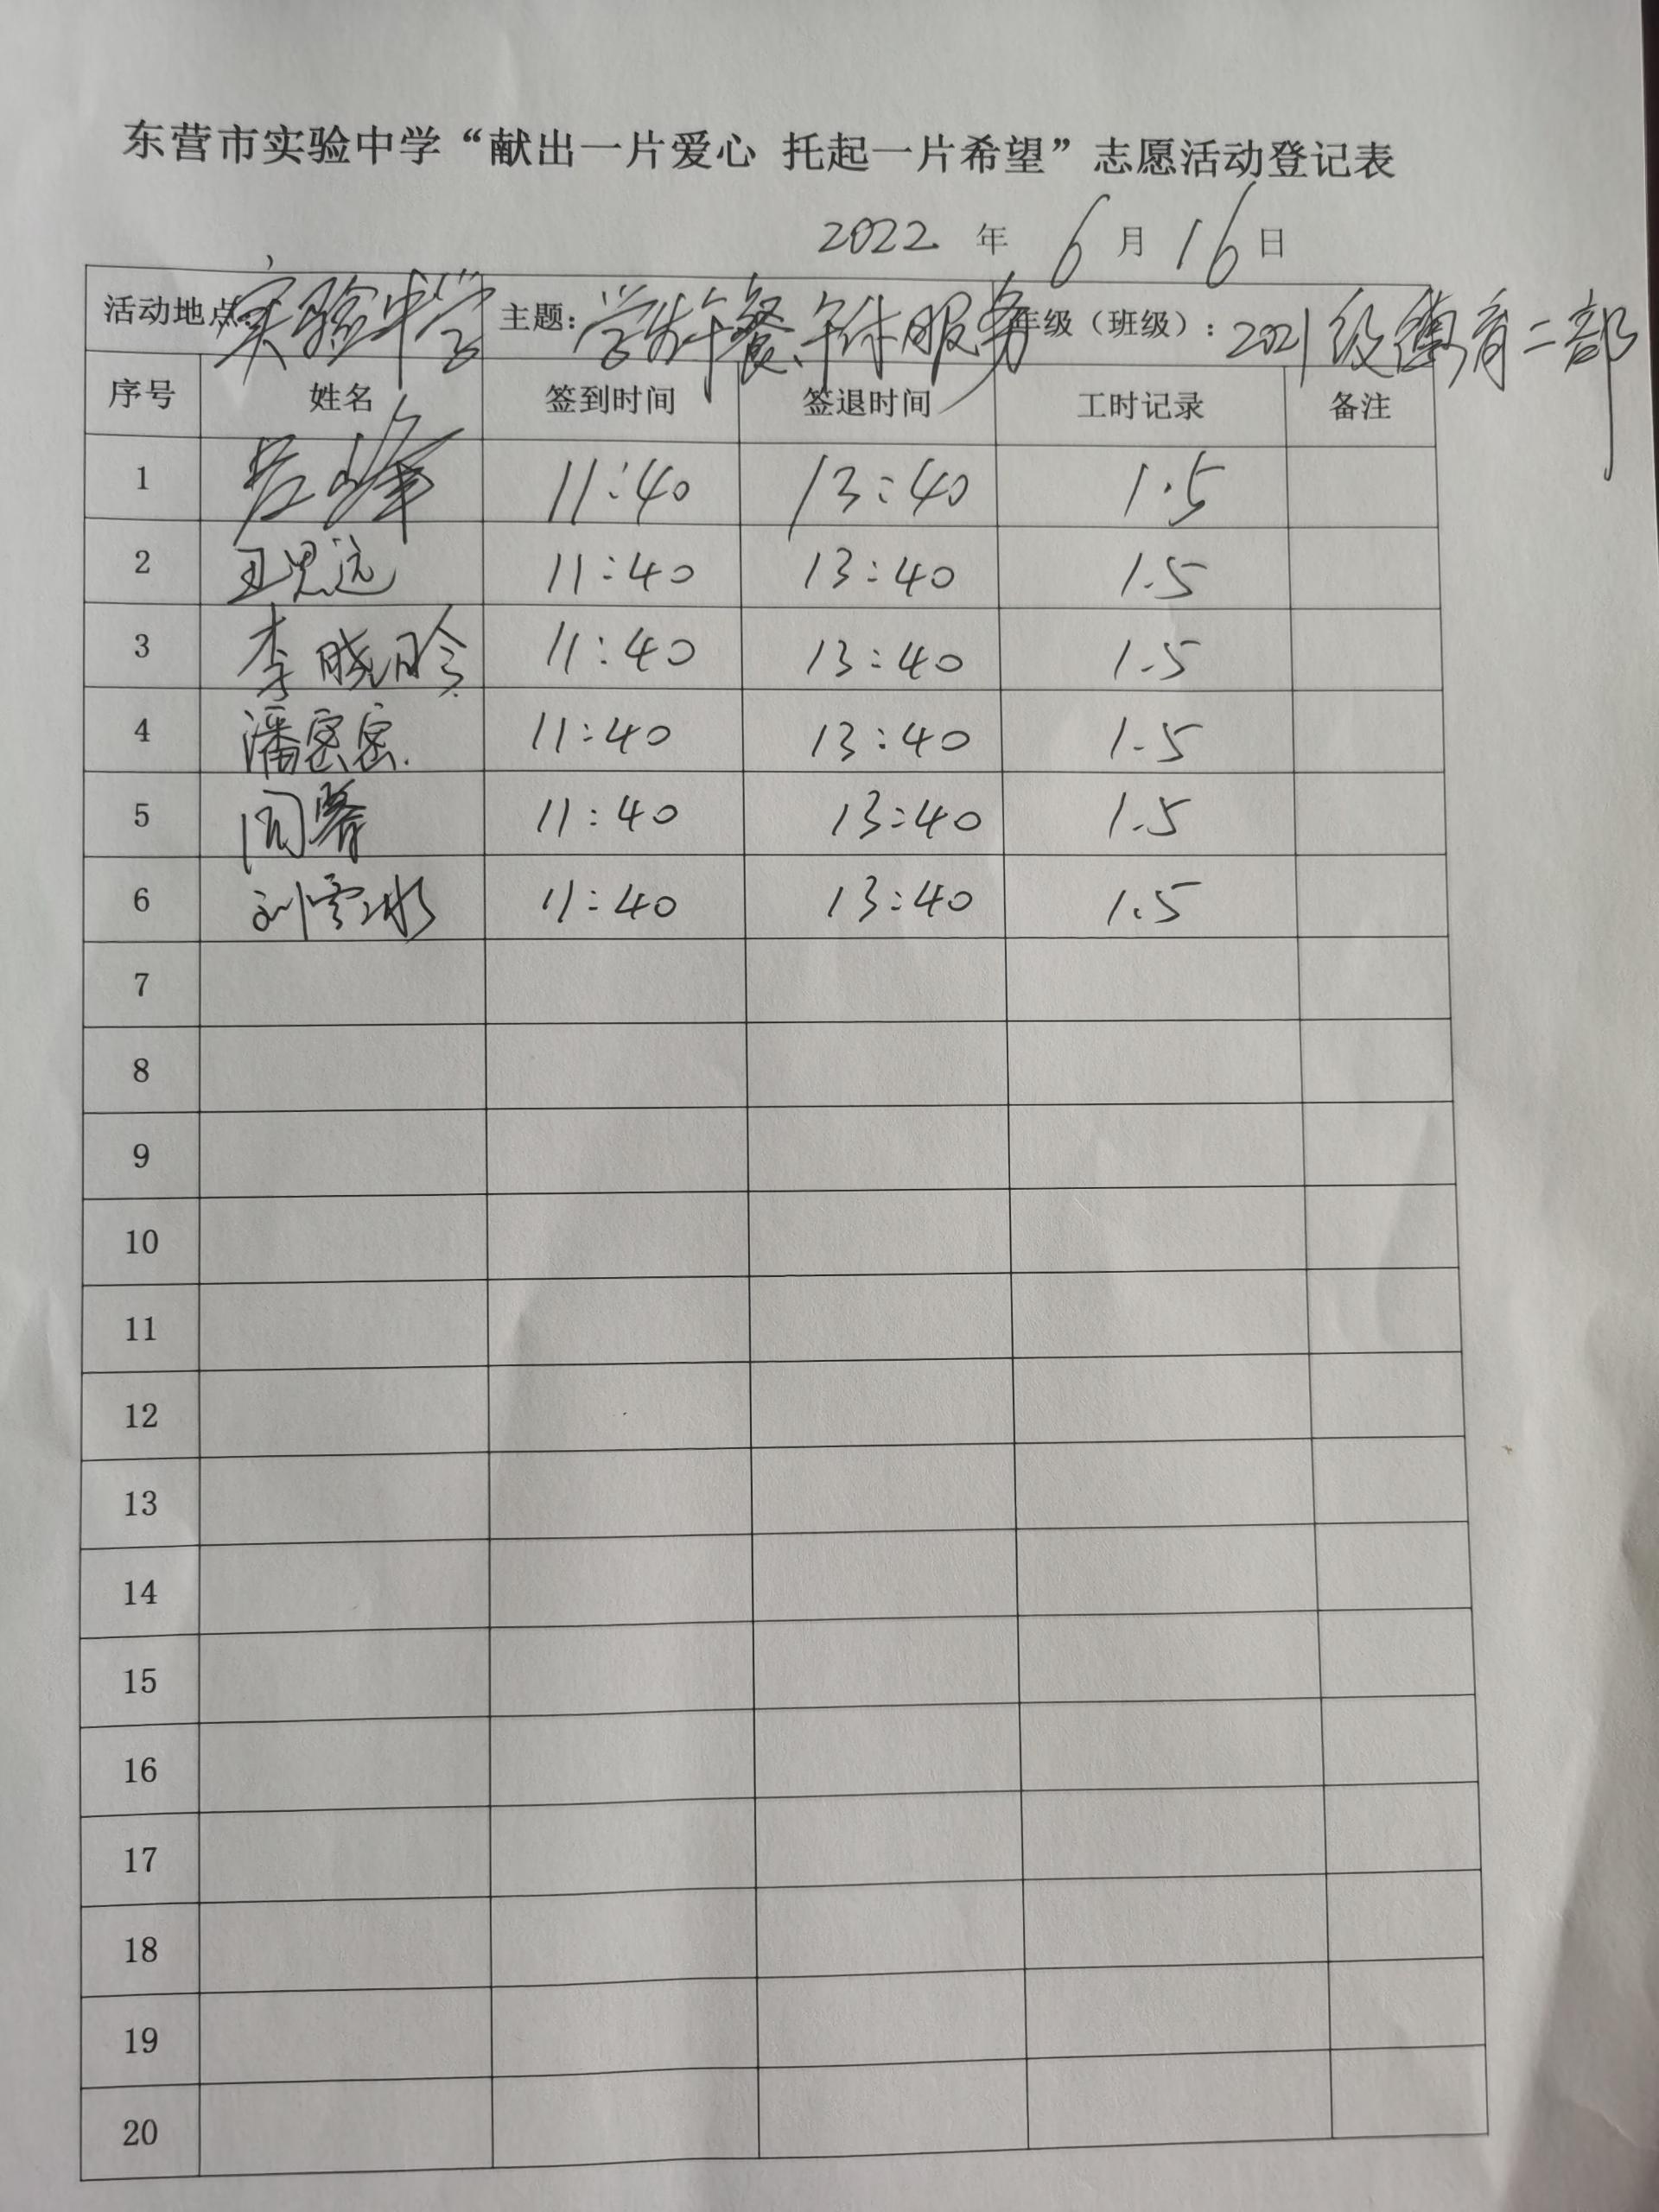 东营市实验中学“献出一片爱心 托起一片希望”志愿活动登记表
2022 年 6 月 16 日
活动地点：实验中学 主题：学生午餐、午休服务 年级（班级）：2021级德育二部
序号 姓名 签到时间 签退时间 工时记录 备注
1 峰 11:40 13:40 1.5
2 王思远 11:40 13:40 1.5
3 李晓玲 11:40 13:40 1.5
4 潘密密 11:40 13:40 1.5
5 周馨 11:40 13:40 1.5
6 刘雪冰 11:40 13:40 1.5
7
8
9
10
11
12
13
14
15
16
17
18
19
20